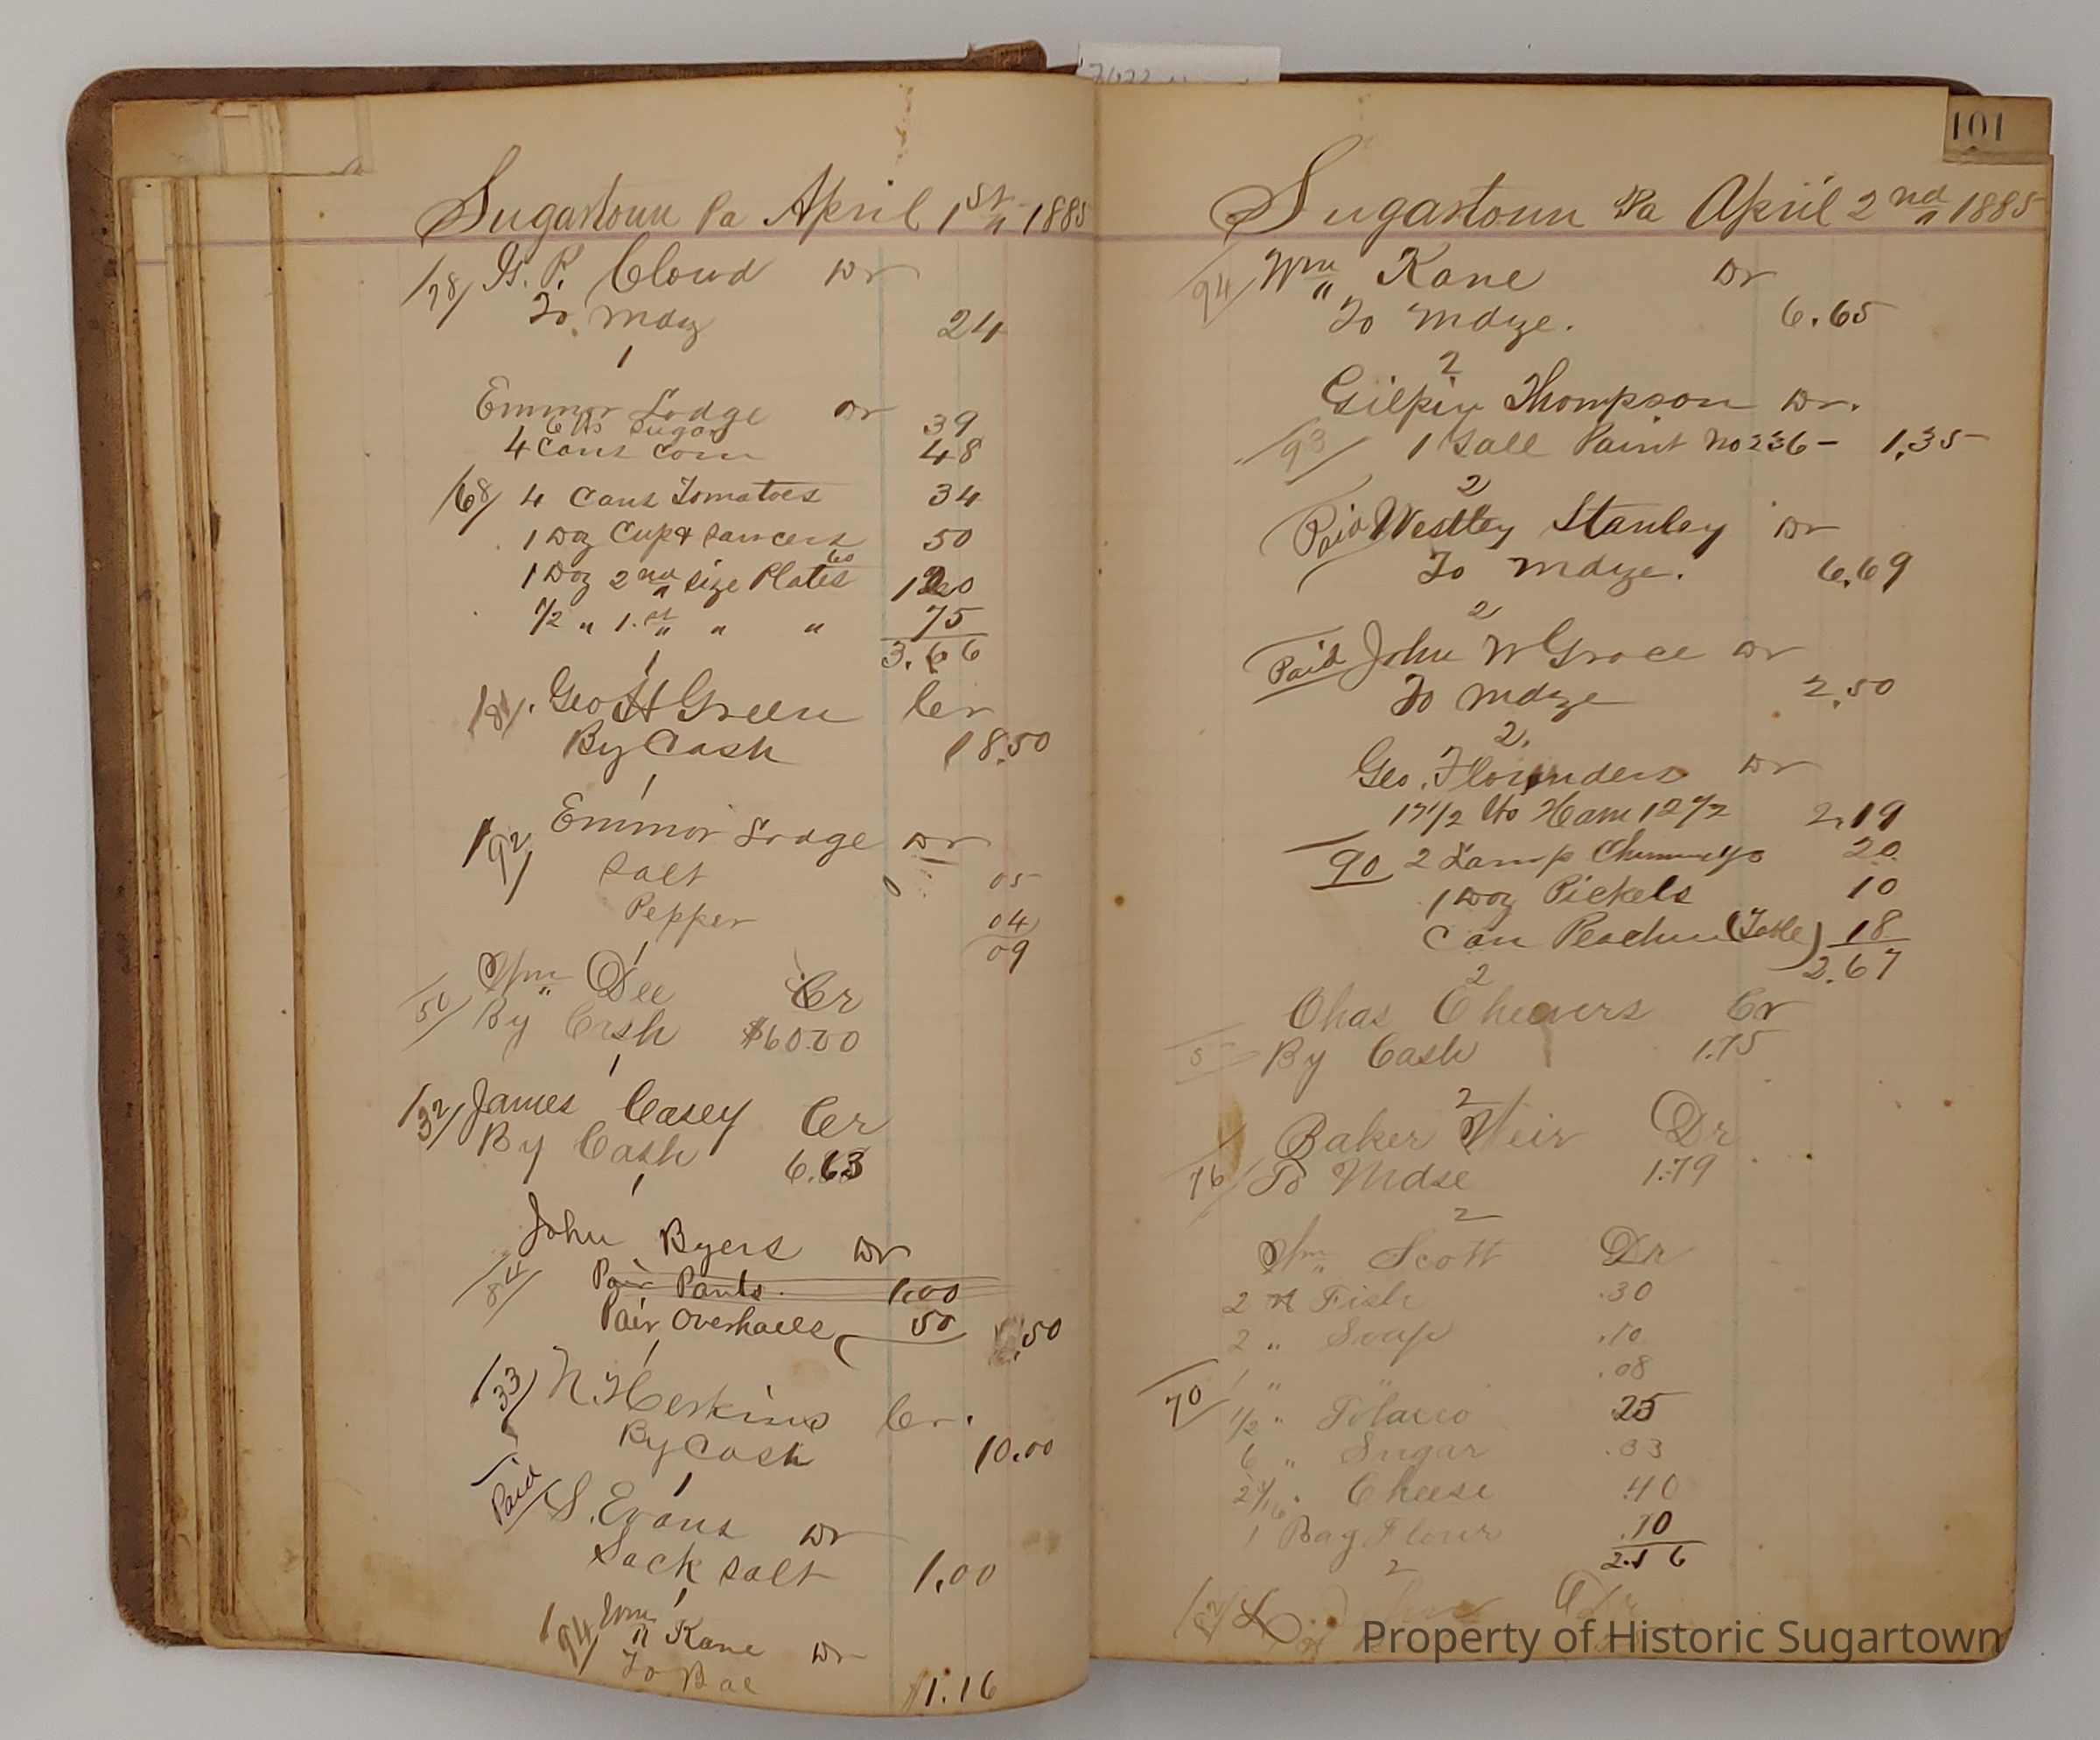 Sugartown Pa April 1st 1885
78 G. P. Cloud Dr
To Mdz 24
1
Emmor Lodge Dr
6 lbs Sugar 39
4 Cans Corn 48
68 4 Cans Tomatoes 34
1 Doz Cup & Saucers 50
1 Doz 2nd Size Plates 60 1.20
1/2 " 1.st " " 75
3.66
1
81 Geo H Green Cr
By Cash 18.50
1
92 Emmor Lodge Dr
Salt 05
Pepper 04
09
1
50 Wm Dee Cr
By Cash $60.00
1
32 James Casey Cr
By Cash 6.63
1
John Byers Dr
84 Pair Pants 1.00
Pair Overhalls 50 .50
1
33 N. Herkins Cr.
By Cash 10.00
1
Paid S. Evans Dr
Sack Salt 1.00
1
94 Wm Kane Dr
To Bal $1.16
101
Sugartown Pa April 2nd 1885
94 Wm Kane Dr
To Mdze. 6.65
2
Gilpin Thompson Dr.
93 1 Gall Paint No 236 - 1.35
2
Paid Westley Stanley Dr
To Mdze. 6.69
2
Paid John W Grace Dr
To Mdze 2.50
2.
Geo. Flounders Dr
17 1/2 lbs Ham 12 1/2 2.19
90 2 Lamp Chimneys 20
1 Doz Pickels 10
Can Peaches (Table) 18
2.67
2
Chas Cheevers Cr
5 By Cash 1.75
2
Baker Weir Dr
76 To Mdse 1.79
2
Wm Scott Dr
2 lb Fish .30
2 " Soap .10
1 " " .08
70 1/2 " Tobacco 25
6 " Sugar .33
2 " Cheese .40
1 Bag Flour .70
2.16
2
Dr
Property of Historic Sugartown